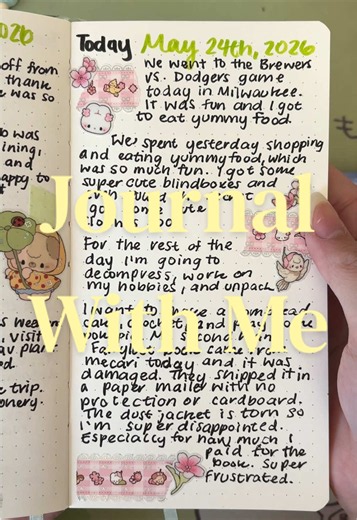 026
off from
thank
e was so
o was
ining,
and
appy to
t
s week
, visit
av plan
d
e trip.
onery.
Today May 24th, 2026
We went to the Brewers
vs. Dodgers game
today in Milwaukee.
It was fun and I got
to eat yummy food.
We spent yesterday shopping
and eating yummy food, which
was so much fun. I got some
super cute blindboxes and
Journal
With Me
For the rest of the
day I'm going to
decompress, work on
my hobbies, and unpack
I want to
crochet, and play
second
today and it was
damaged. They shipped it in
a paper mailer with no
protection or cardboard.
The dust jacket is torn so
I'm super disappointed.
Especially for how much I
paid for the
book. Super
frustrated.